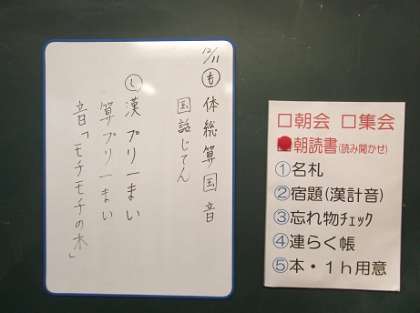 12/11
㊍ 体総算国音
国語じてん
㋛ 漢プリ一まい
算プリ一まい
音「モチモチの木」
□朝会 □集会
朝読書(読み聞かせ)
①名札
②宿題(漢計音)
③忘れ物チェック
④連らく帳
⑤本・1h用意